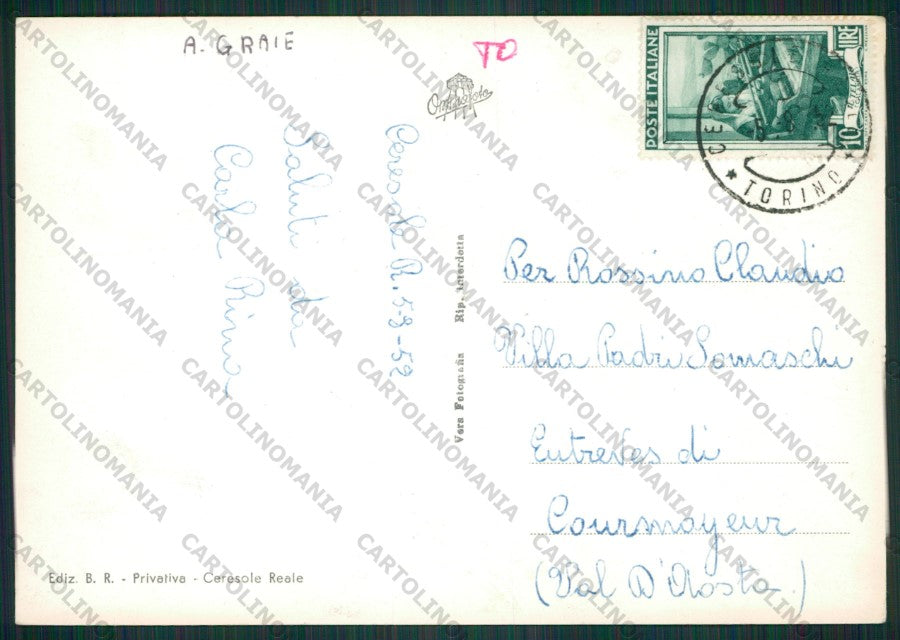 A. GRAIE
TO
POSTE ITALIANE
LIRE
10
TORINO
Ceresole R. 5-8-52
Saluti da
Carla Rino
Vera Fotografia Rip. interdetta
Per Rossino Claudio
Villa Padri Somaschi
Entreves di
Courmayeur
(Val D'Aosta)
Ediz. B. R. - Privativa - Ceresole Reale
CARTOLINOMANIA